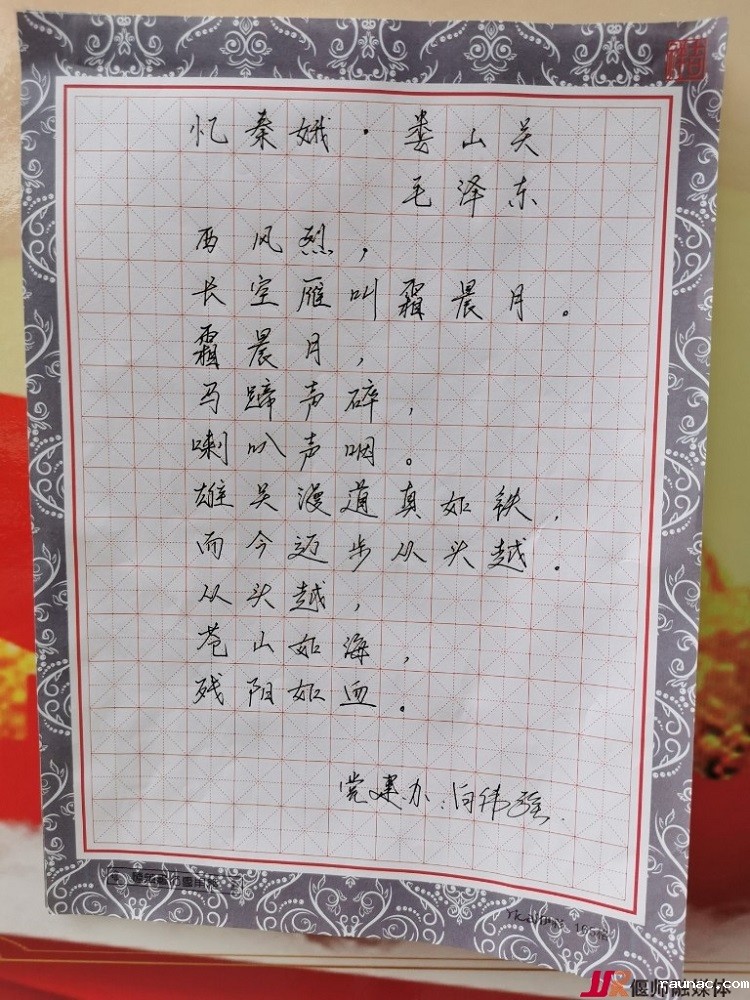 忆秦娥·娄山关
毛泽东
西风烈，
长空雁叫霜晨月。
霜晨月，
马蹄声碎，
喇叭声咽。
雄关漫道真如铁，
而今迈步从头越．
从头越，
苍山如海，
残阳如血。
党建办：向伟强
偃师融媒体
raunac.com